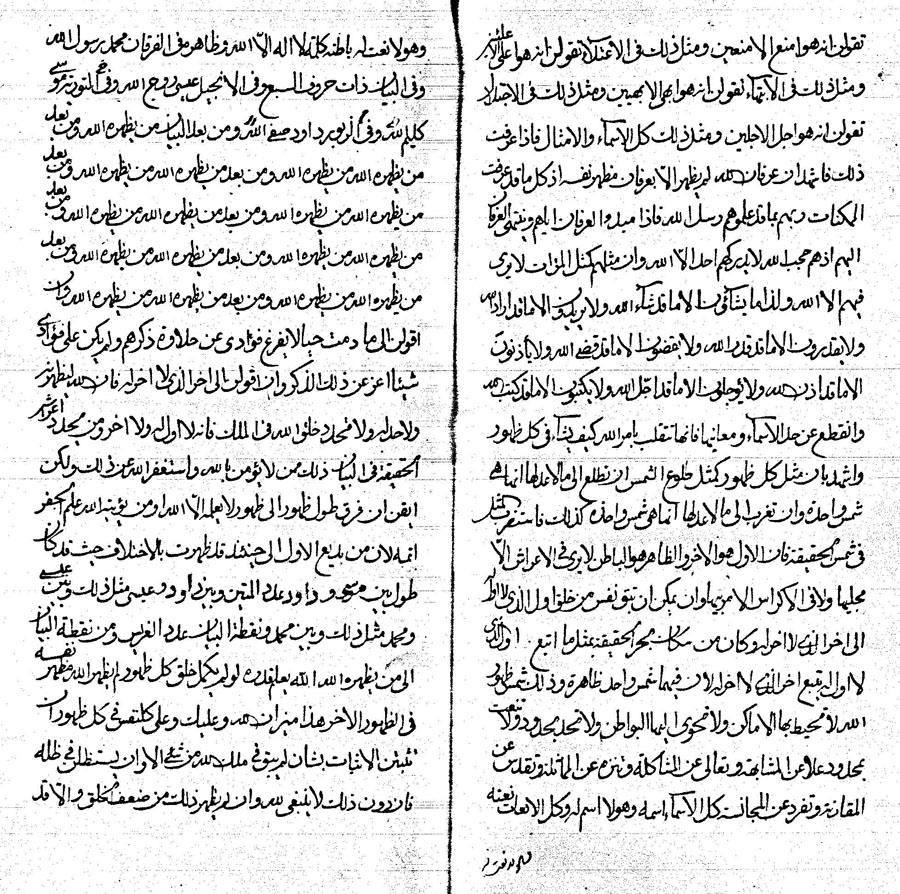 تقولن انه هو امنع الامنعين ومثل ذلك في الاعتلاء تقولن انه هو اعلى الاعلين
ومثل ذلك في الابتهاء تقولن انه هو ابهى الابهيين ومثل ذلك في الاجتلال
تقولن انه هو اجل الاجلين ومثل ذلك كل الاسماء والامثال فاذا عرفت
ذلك فاشهد ان عرفان الله لم يظهر الا بعرفان مظهر نفسه اذ كل ما قد عرفت
الممكنات ربهم بما قد علموهم رسل الله فاذا مبدء العرفان اياهم وينتهى العرفان
اليهم اذ هم حجب لله لا يدركهم احد الا الله وان مثلهم كمثل المرات لا يرى
فيهم الا الله ولذا ما يشاؤن الا ما قد شاء الله ولا يريدون الا ما قد اراد الله
ولا يقدرون الا ما قد قدر الله ولا يقضون الا ما قد قضى الله ولا ياذنون
الا ما قد اذن الله ولا يؤجلون الا ما قد اجل الله ولا يكتبون الا ما قد كتب الله
وانقطع عن حد الاسماء ومعانيها فانها تتقلب بامر الله كيف يشاء في كل ظهور
واشهد بان مثل كل ظهور كمثل طلوع الشمس ان تطلع الى ما لا عد لها انما هي
شمس واحدة وان تغرب الى ما لا عد لها انما هي شمس واحدة كذلك فاستنظر
في شمس الحقيقة فان الاول هو الاخر والظاهر هو الباطن لا يرى في الاعراش الا
مجليها ولا في الاكراس الا مربيها وان يمكن ان يبقو نفس من خلق اول الذي لا اول له
الى اخر الذي لا اخر له وكان من سكان بحر الحقيقة بمثل ما اتبع اول الذي
لا اول له يتبع اخر الذي لا اخر له لان فيهما شمس واحد ظاهرة وذلك شمس ظهور
الله لا تحيط بها الاماكن ولا تحوى اليها البواطن ولا تحد بحدود ولا تنعت
بحدود علا عن المشابهة وتعالى عن المشاكلة وتنزه عن المماثلة وتقدس عن
المقارنة وتفرد عن المجانسة كل الاسماء اسمه وهو لا اسم له وكل الانعات نعته
وهو لا نعت له باطنه كلمة لا اله الا الله وظاهره في الفرقان محمد رسول الله
وفي البيان ذات حروف السبع وفي الانجيل عيسى روح الله وفي التورية موسى
كليم الله وفي الزبور داود صفي الله ومن بعد البيان من يظهره الله ومن بعد
من يظهره الله من يظهره الله ومن بعد من يظهره الله من يظهره الله ومن بعد
من يظهره الله من يظهره الله ومن بعد من يظهره الله من يظهره الله ومن بعد
من يظهره الله من يظهره الله ومن بعد من يظهره الله من يظهره الله ومن بعد
من يظهره الله من يظهره الله ومن بعد من يظهره الله من يظهره الله وان
اقولن الى ما دمت حيا لا يفرغ فؤادى عن حلاوة ذكرهم ولم يكن على فؤادى
شيئا اعز عن ذلك الذكر وان اقولن الى اخر الذي لا اخر له فان لله ليظهرنه
ولا حد له ولا تحدد خلق الله في الملك فانه لا اول له ولا اخر ومن يحدد اعراش
الحقيقة في البيان ذلك من لا يؤمن بالله واستغفر الله عن ذلك ولكن
ايقن ان فرق طول ظهور الى ظهور لا يعلمه الا الله او من يؤتيه الله علم الجفر
اتمه لان من بديع الاول الى حينئذ قد ظهرت بالاختلاف حيث قد كان
طول بين موسى وداود عدد المتين وبين داود وعيسى مثل ذلك وبين عيسى
ومحمد مثل ذلك وبين محمد ونقطة البيان عدد الغرس ومن نقطة البيان
الى من يظهره الله الله يعلم قدره لو لم يكمل خلق كل ظهور لم يظهر الله مظهر نفسه
في الظهور الاخر هذا ميزان الله وعليك وعلى كل نفس في كل ظهور ان
تثبتن الاثبات بشأن لم يبق في ملك الله من شيء الا وان يستظل في ظله
فان دون ذلك لا ينبغي لله وان لم يظهر ذلك من ضعف الخلق والا قد